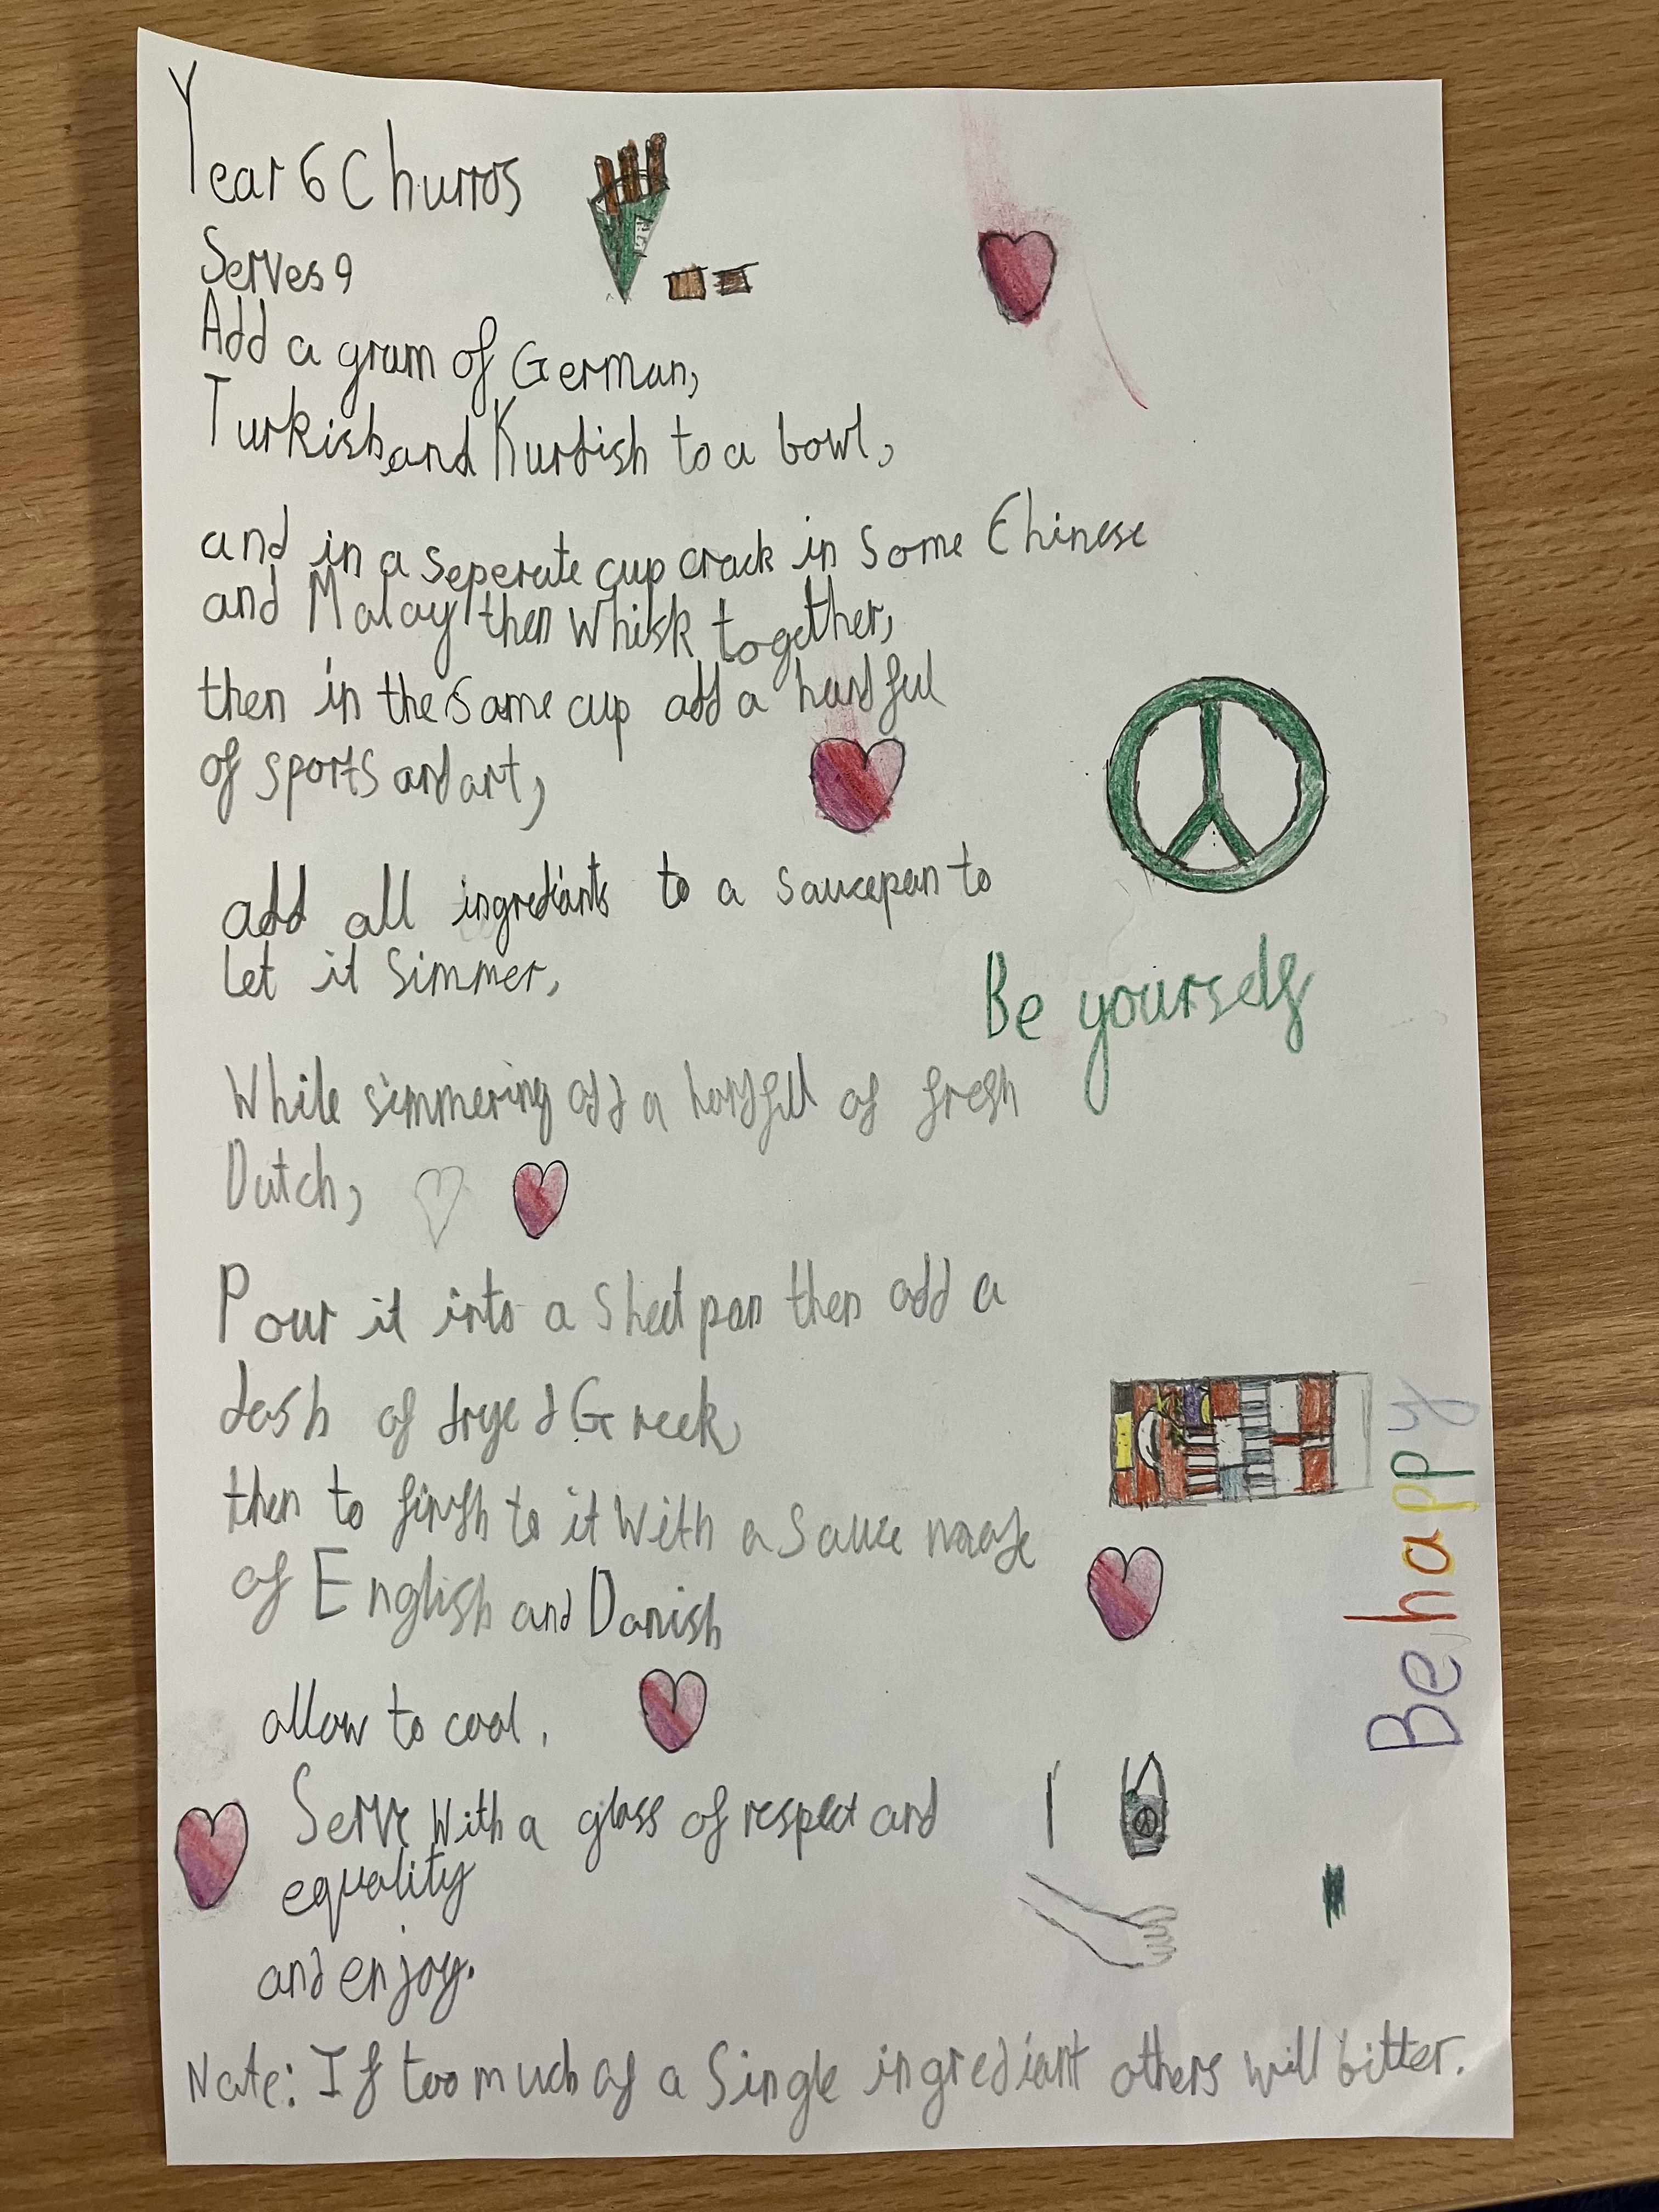 Year 6 Churros
Serves 9
Add a gram of German,
Turkish and Kurdish to a bowl,
and in a seperate cup crack in some Chinese
and Malay then whisk together,
then in the same cup add a handful
of sports and art,
add all ingrediants to a saucepan to
Let it simmer,
Be yourself
While simmering add a handful of fresh
Dutch,
Pour it into a sheet pan then add a
dash of Greek,
then to finish to it with a sauce made
of English and Danish
Be happy
allow to cool.
Serve with a glass of respect and
equality
and enjoy.
Note: If too much of a single ingrediant others will bitter.